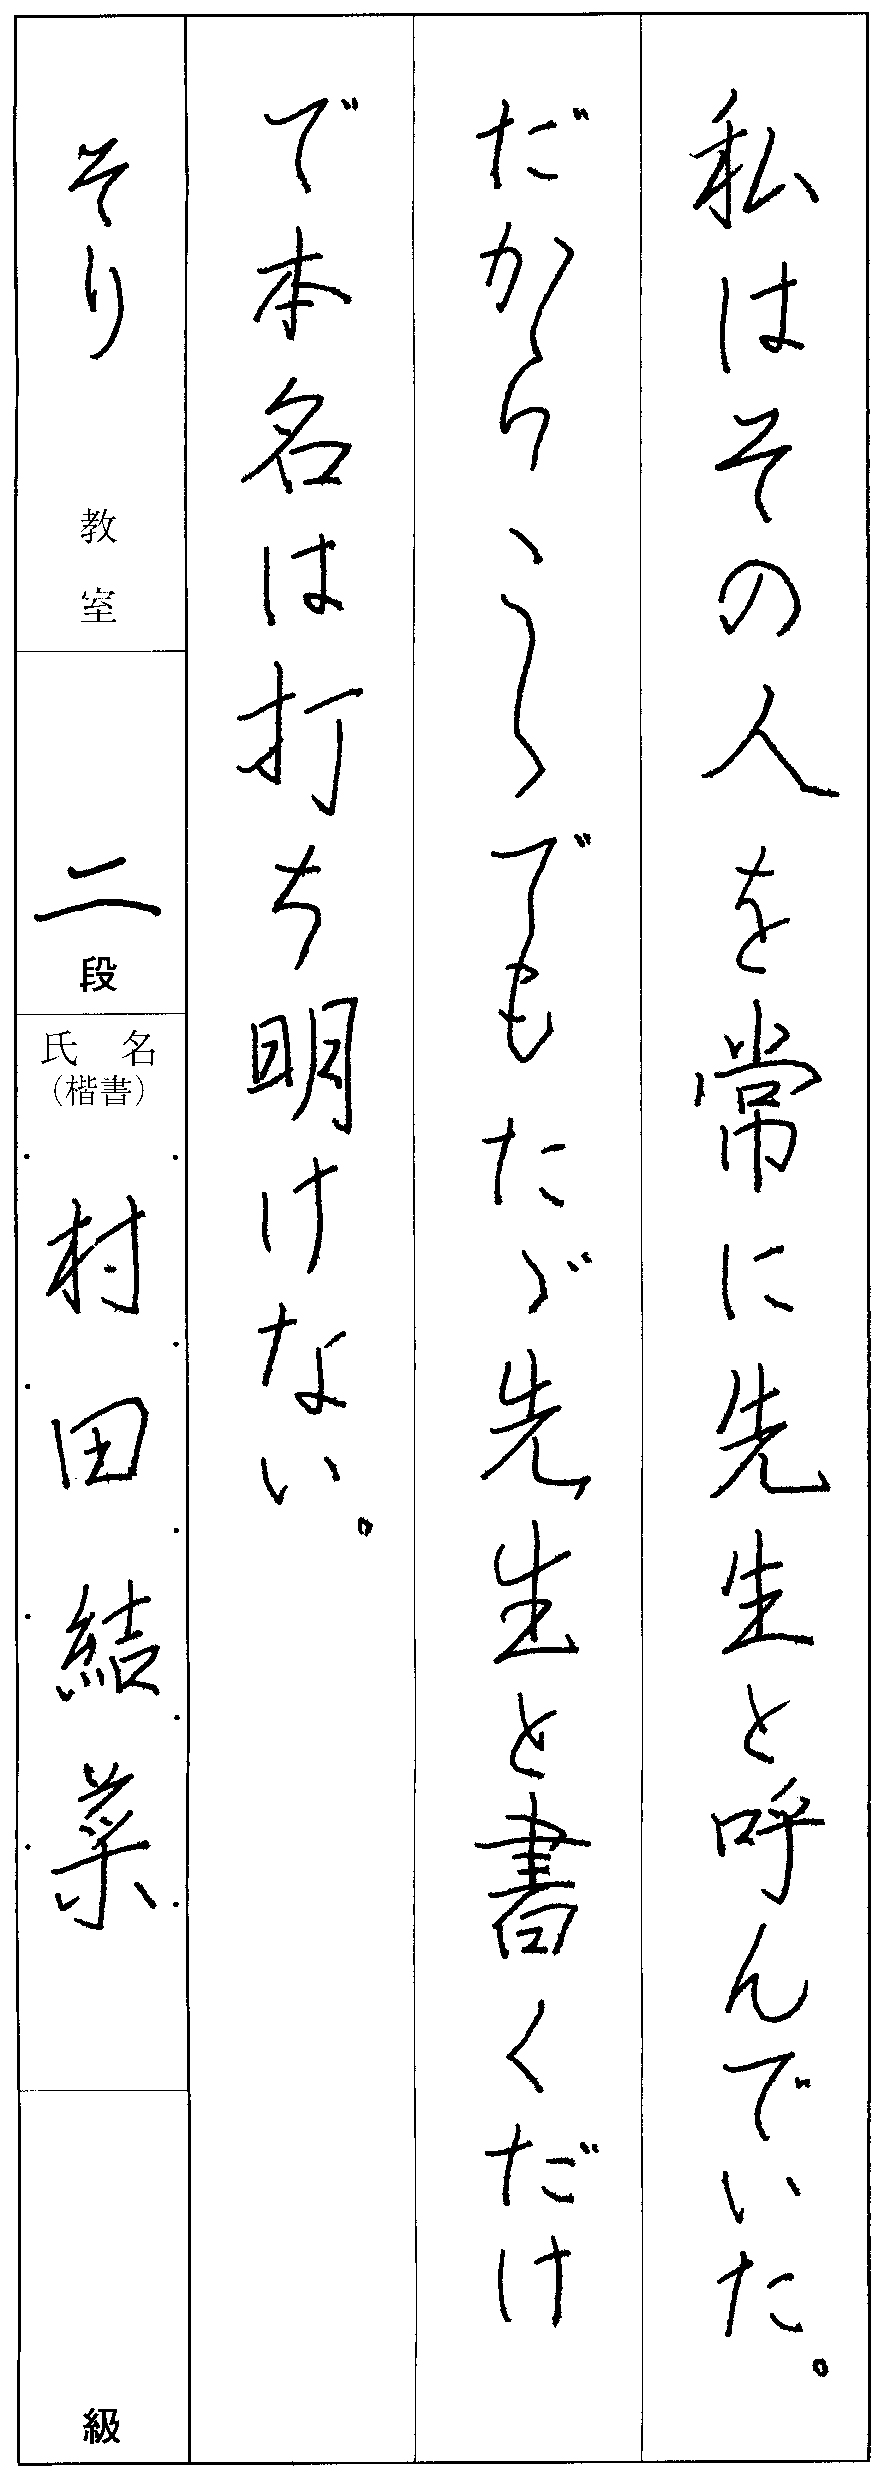 私はその人を常に先生と呼んでいた。
だからこゝでもたゞ先生と書くだけ
で本名は打ち明けない。
そり 教室
二 段
氏名
（楷書）
村田結菜
級